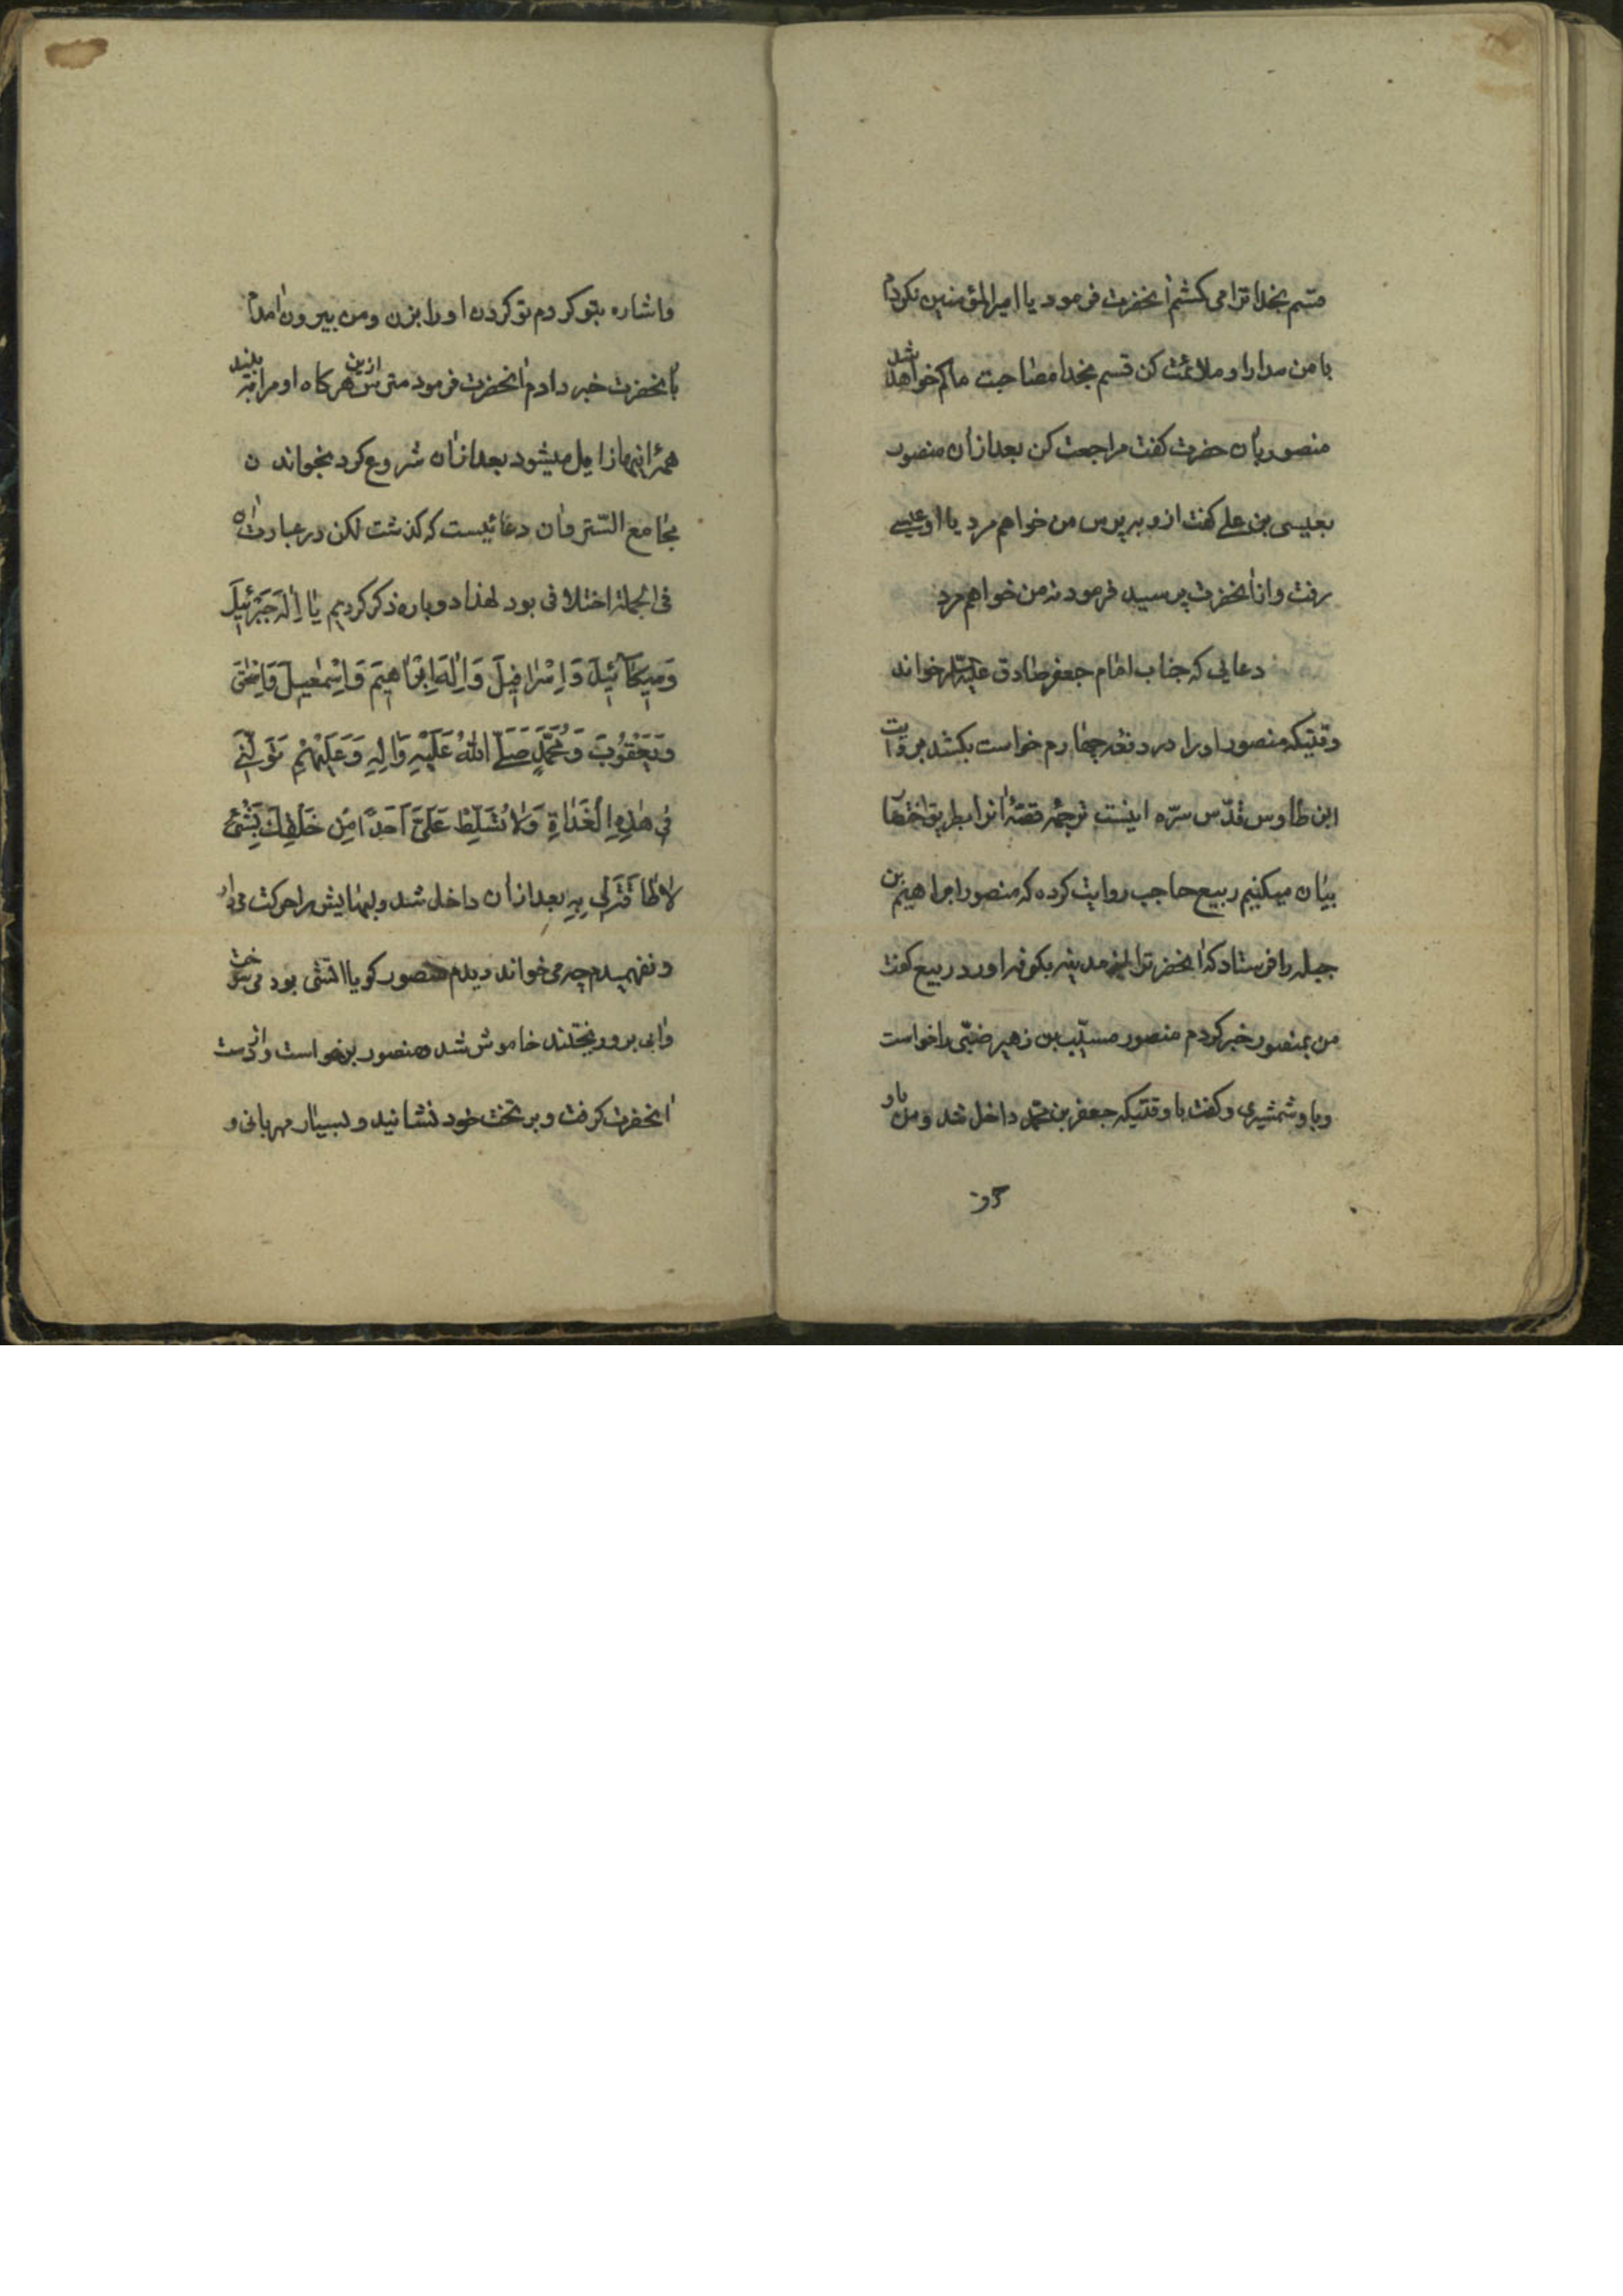 قسم بخدا ترا می کشم آنحضرت فرمود یا امیرالمؤمنین نکردم
با من مدارا و ملائمت کن قسم بخدا مصاحبت ما کم خواهد شد
منصور بآن حضرت کفت مراجعت کن بعد ازآن منصور
بعیسی بن علی کفت ازو بپرس من خواهم مرد یا او عیسی
رفت و ازآنحضرت پرسید فرمود نه من خواهم مرد
دعایی که جناب امام جعفر صادق علیه السلام خواند
وقتیکه منصور او را در دفعه چهارم خواست بکشد بروایت
ابن طاوس قدّس سرّه اینست ترجمه قصهٔ آنرا بطریق اختصار
بیان میکنیم ربیع حاجب روایت کرده که منصور ابراهیم بن
جبله را فرستاد که آنحضرت را از مدینه بکوفه اورد ربیع کفت
من بمنصور خبر کردم منصور مسیّب بن زهیر ضبّی را خواست
و باو شمشیری و کفت باو وقتیکه جعفر بن محمّد داخل شد و من باو
حرف
واشاره بتو کردم تو کردن او را بزن ومن بیرون آمدم
بآنحضرت خبر دادم آنحضرت فرمود مترس ازین هرکاه او مرا به بیند
همهٔ اینها زایل میشود بعد ازآن شروع کرد بخواندن
بجامع السّتر وآن دعائیست که کذشت لکن در عبارت آن
فی الجملة اختلافی بود لهذا دوباره ذکر کردیم یَا اِلٰهَ جَبْرَئِیلَ
وَمِیکَآئِیلَ وَاِسْرَافِیلَ وَاِلٰهَ اِبْرَاهِیمَ وَاِسْمٰعِیلَ وَاِسْحٰقَ
وَیَعْقُوبَ وَمُحَمَّدٍ صَلَّی اللّٰهُ عَلَیْهِ وَاٰلِهِ وَعَلَیْهِمْ تَوَلَّنِی
فِی هٰذِهِ الْغَدَاةِ وَلَا تُسَلِّطْ عَلَیَّ اَحَدًا مِنْ خَلْقِكَ بِشَیْءٍ
لَا طَاقَةَ لِی بِهِ بعد ازآن داخل شد و لبهایش را حرکت می داد
و نفهمیدم چه می خواند دیدم منصور کویا اتشی بود می سوخت
وآبی برو ریختند خاموش شد ومنصور برخواست و از دست
آنحضرت کرفت و بر تخت خود نشانید و بسیار مهربانی و